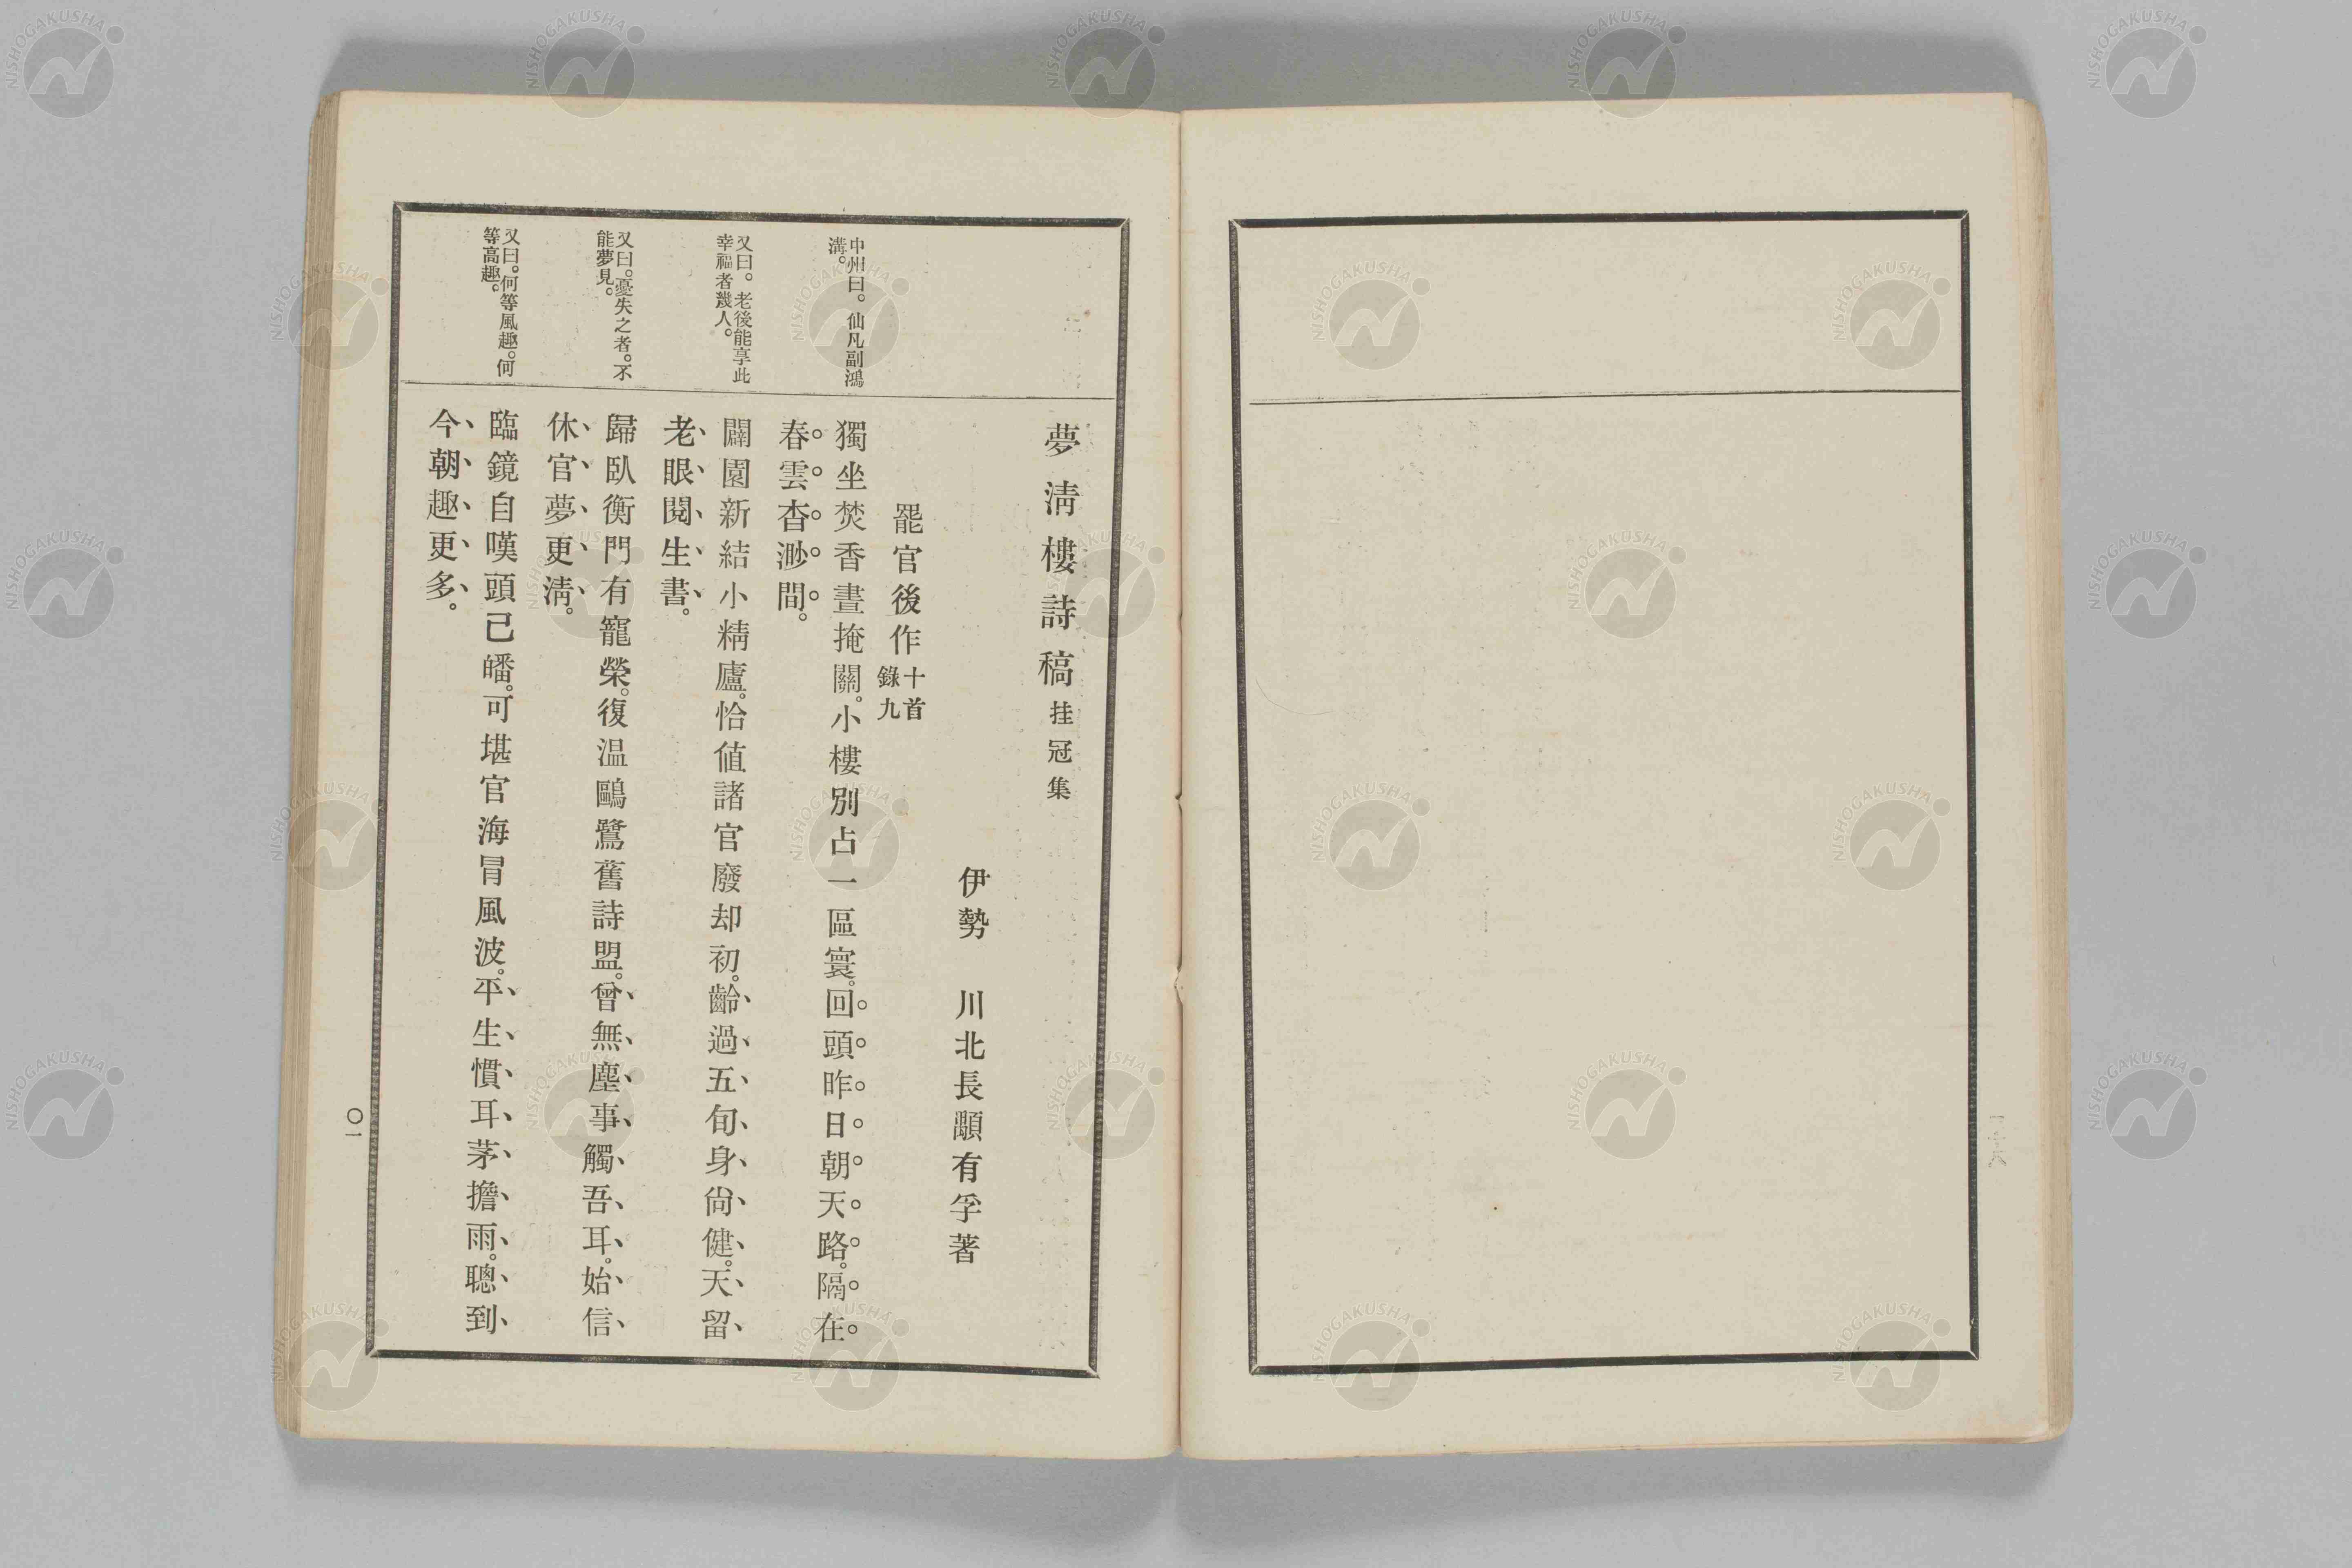 夢淸樓詩稿 挂冠集
伊勢　川北長顒有孚著
罷官後作 十首錄九
獨坐焚香晝掩關。小樓別占一區寰。回頭昨日朝天路。隔在
春雲杳渺間。
闢園新結小精廬。恰値諸官廢却初。齡過五旬身尙健。天留
老眼閱生書。
歸臥衡門有寵榮。復温鷗鷺舊詩盟。曾無塵事觸吾耳。始信
休官夢更淸。
臨鏡自嘆頭已皤。可堪官海冐風波。平生慣耳茅擔雨。聽到
今朝趣更多。
中州曰。仙凡副鴻
溝。
又曰。老後能享此
幸福者幾人。
又曰。憂失之者。不
能夢見。
又曰。何等風趣。何
等高趣。
〇一
NISHOGAKUSHA